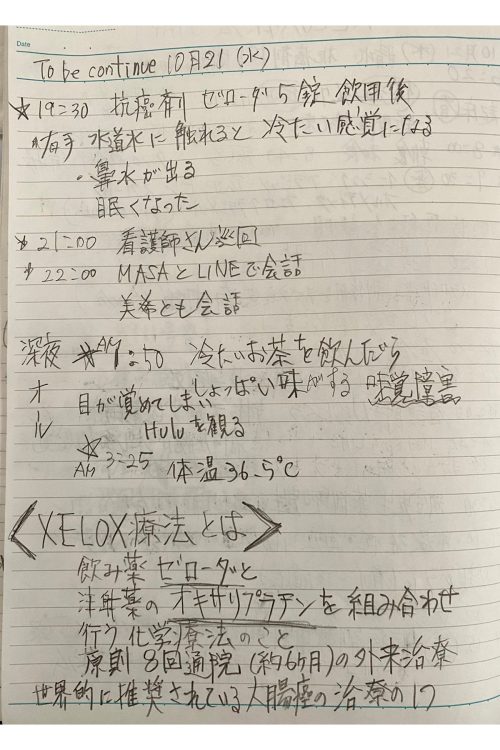 Date
To be continue 10月21(水)
☆19:30 抗癌剤 ゼローダ5錠 飲用後
右手 水道水に触れると 冷たい感覚になる
・鼻水が出る
眠くなった
☆21:00 看護師さん巡回
☆22:00 MASAとLINEで会話
美希とも会話
深夜 ☆AM1:50 冷たいお茶を飲んだら
しょっぱい味がする 味覚障害
オール 目が覚めてしまい
Huluを観る
☆AM 3:25 体温36.5℃
<XELOX療法とは>
飲み薬 ゼローダと
注射薬のオキサリプラチンを組み合わせ
行う化学療法のこと
原則8回通院(約6ヶ月)の外来治療
世界的に推奨されている大腸癌の治療の1つ